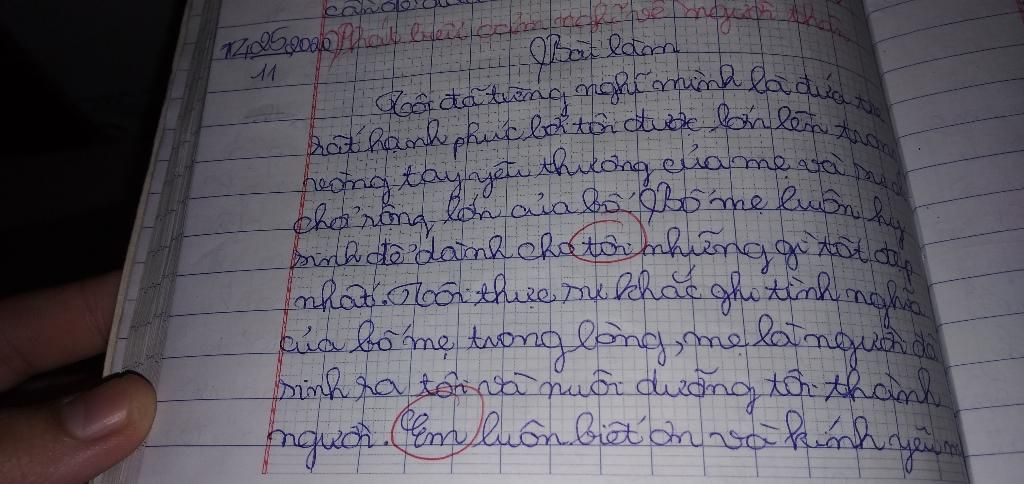 Phát biểu cảm nghĩ về người thân
Bài làm
11
Tôi đã từng nghĩ mình là đứa trẻ
rất hạnh phúc bởi tôi được lớn lên trong
vòng tay yêu thương của mẹ và sự
chở rộng lớn của bố. Bố mẹ luôn hy
sinh để dành cho tôi những gì tốt đẹp
nhất. Tôi thực sự khắc ghi tình nghĩa
của bố mẹ trong lòng, mẹ là người đã
sinh ra tôi và nuôi dưỡng tôi thành
người. Em luôn biết ơn và kính yêu